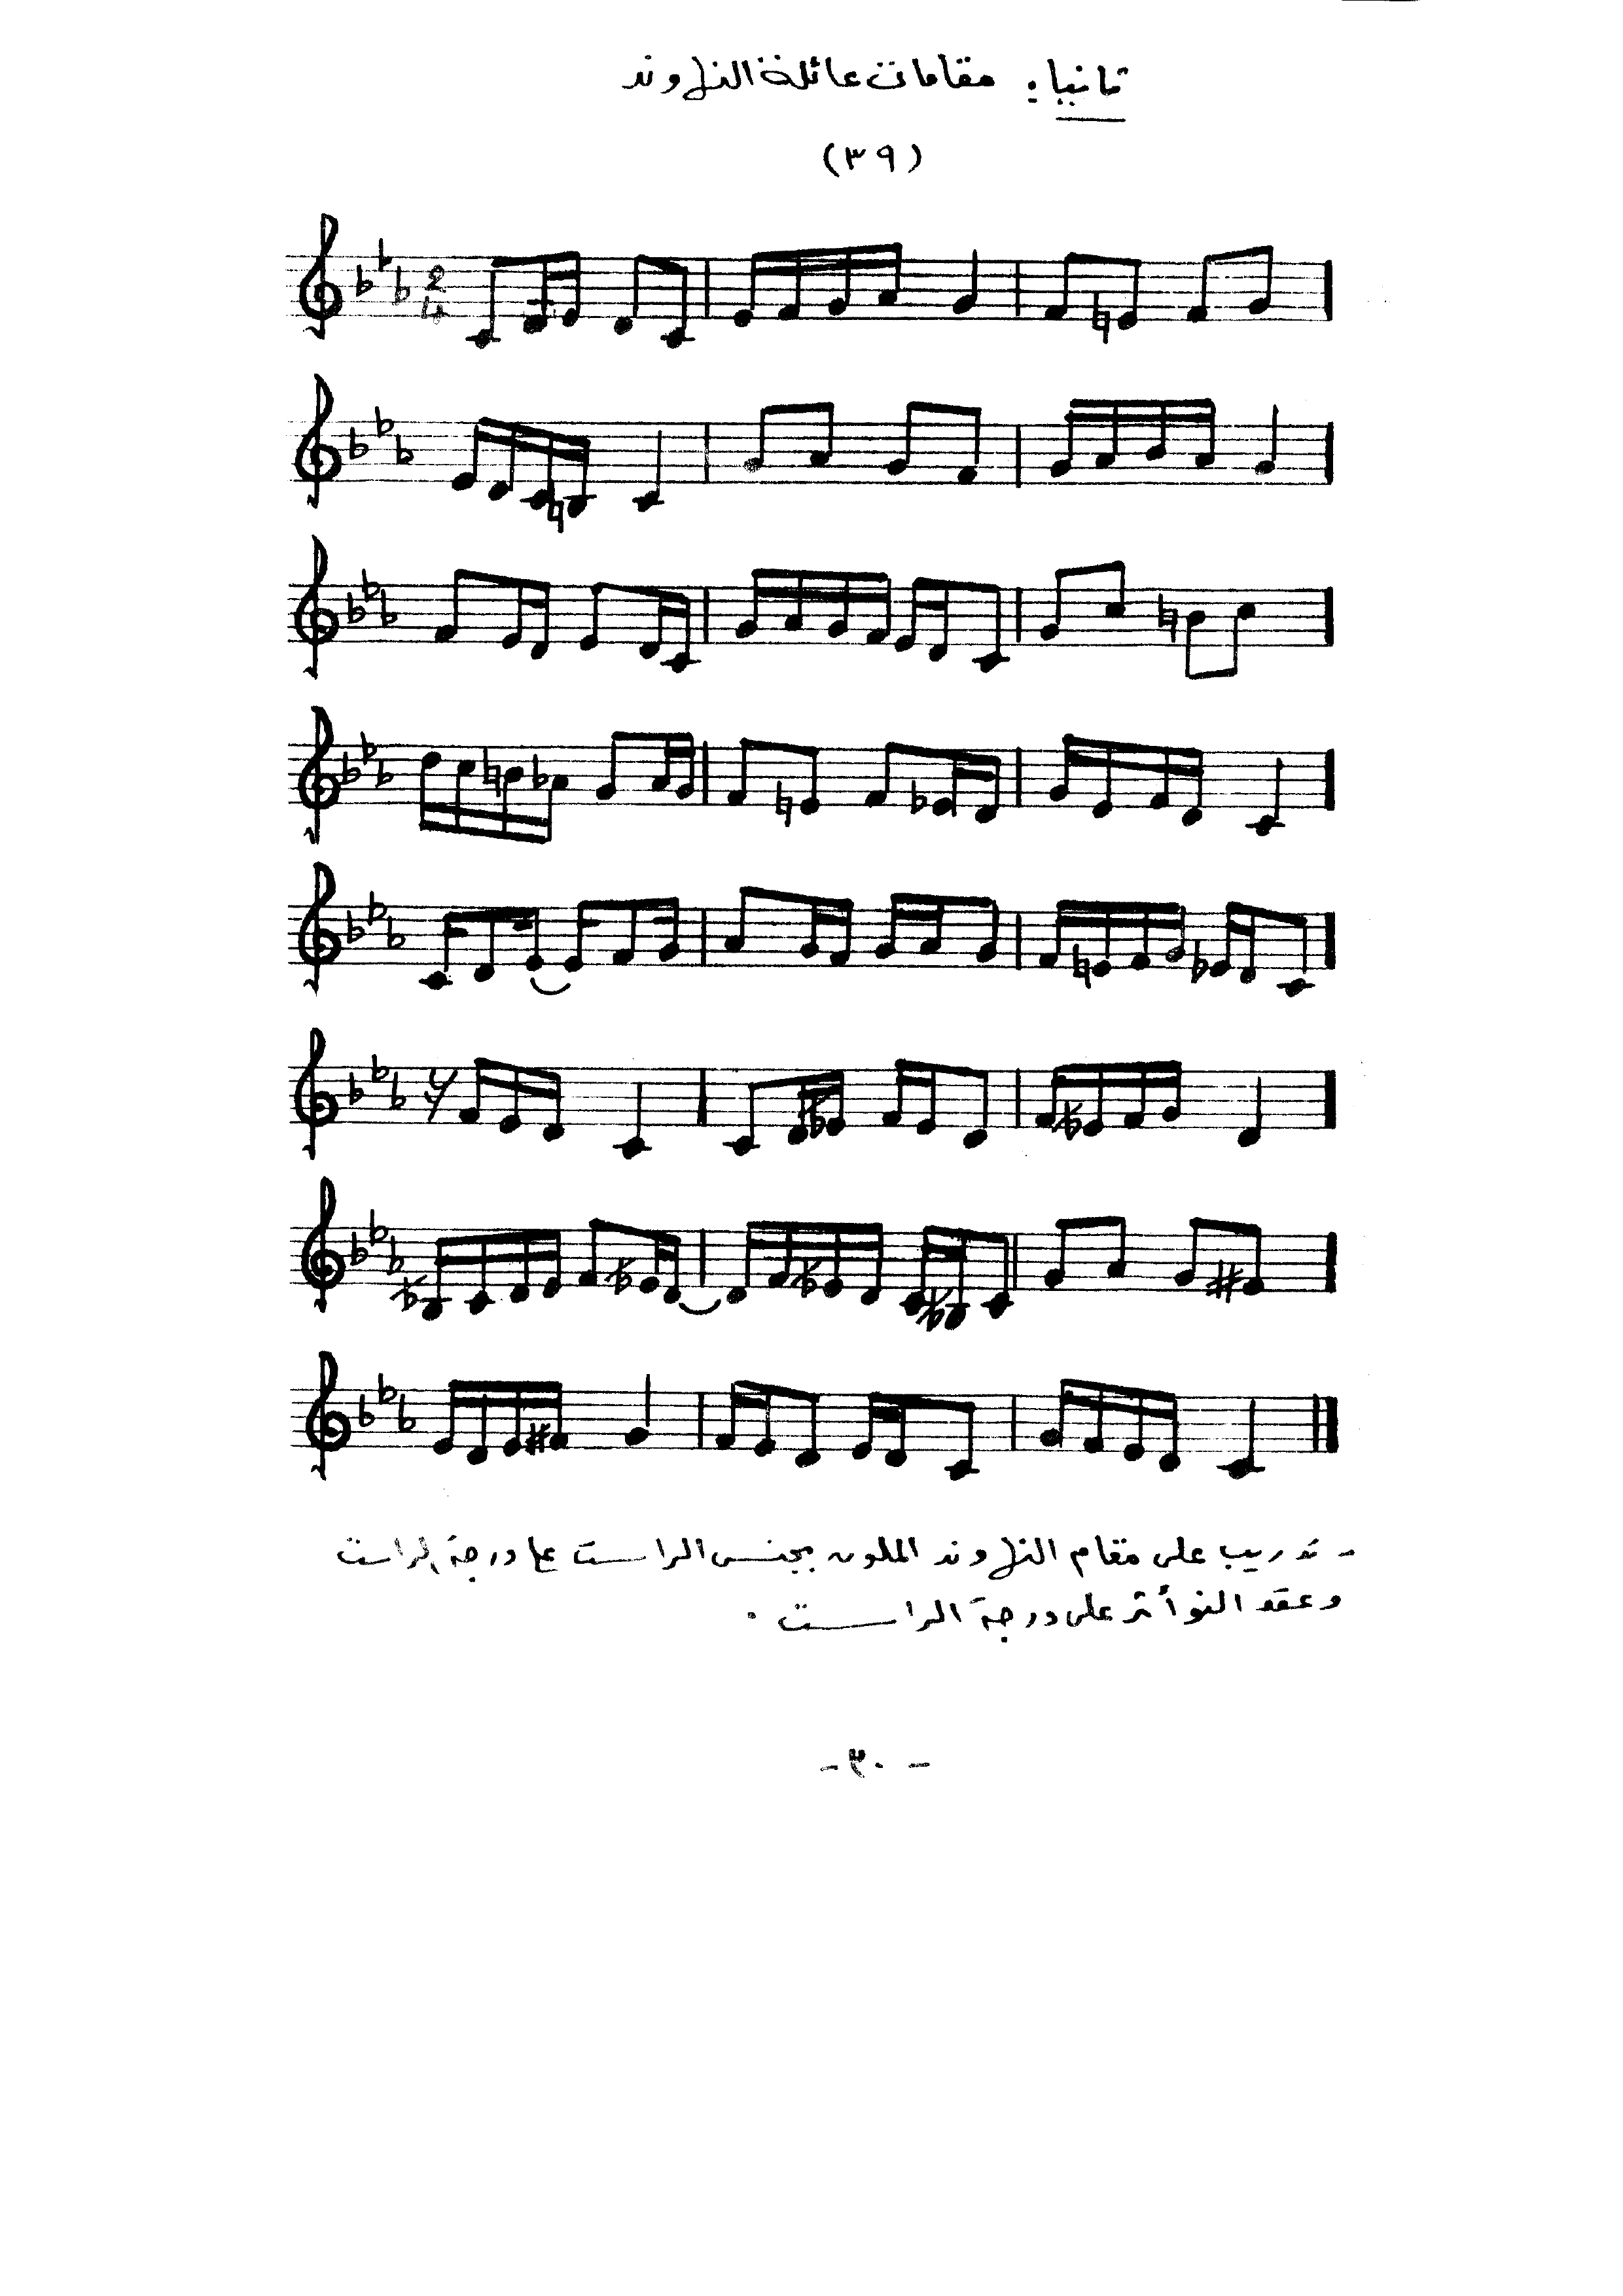 ثانيا: مقامات عائلة النهاوند
(٣٩)
2
4
- تدريب على مقام النهاوند الملون بجنس الراست على درجة الراست
وعقد النوأثر على درجة الراست .
- ٣٠ -